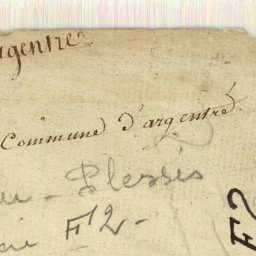 rgentré
Commune d'argentré
- Plessis
F2 -
F2